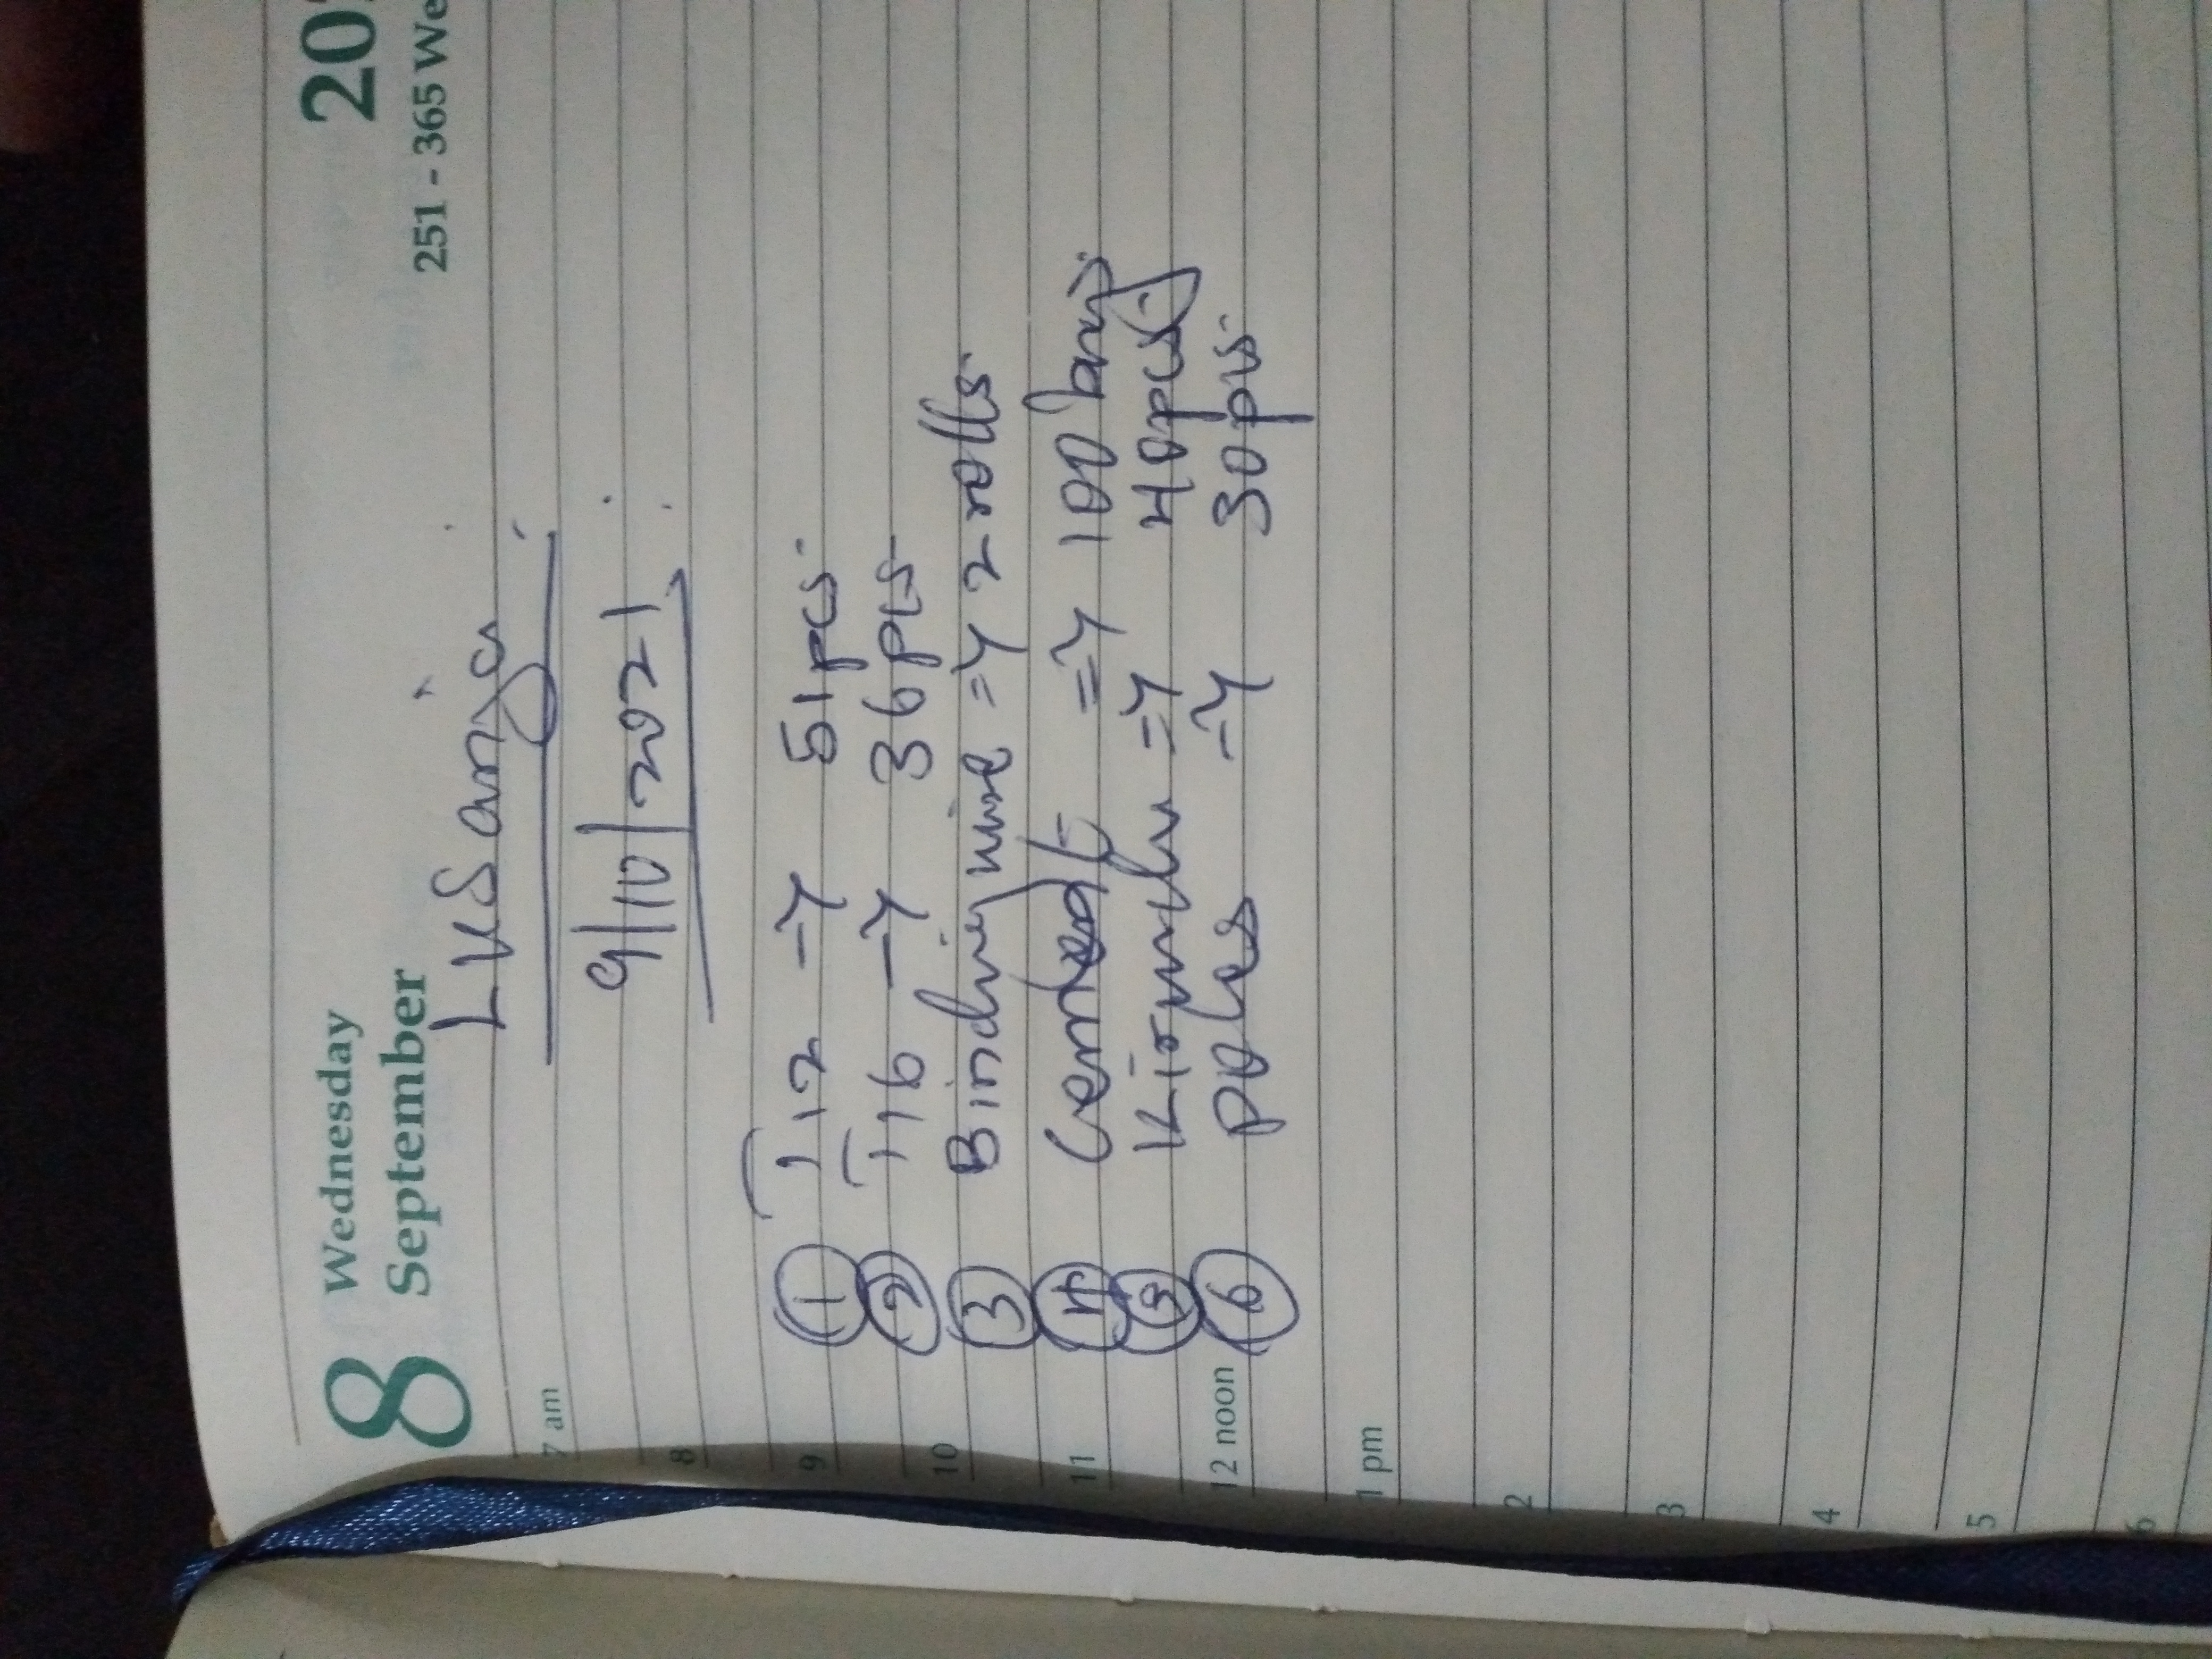 8 Wednesday 20
September
251 - 365 We
LUSanja
7 am
9/10/2021
8
① T12 → 51pcs
9
② T16 → 36pcs
10
③ Binding wire => 2 rolls
11
④ Cement => 100 bags
⑤ => 40pcs
12 noon
⑥ poles → 30pcs
1 pm
2
3
4
5
6